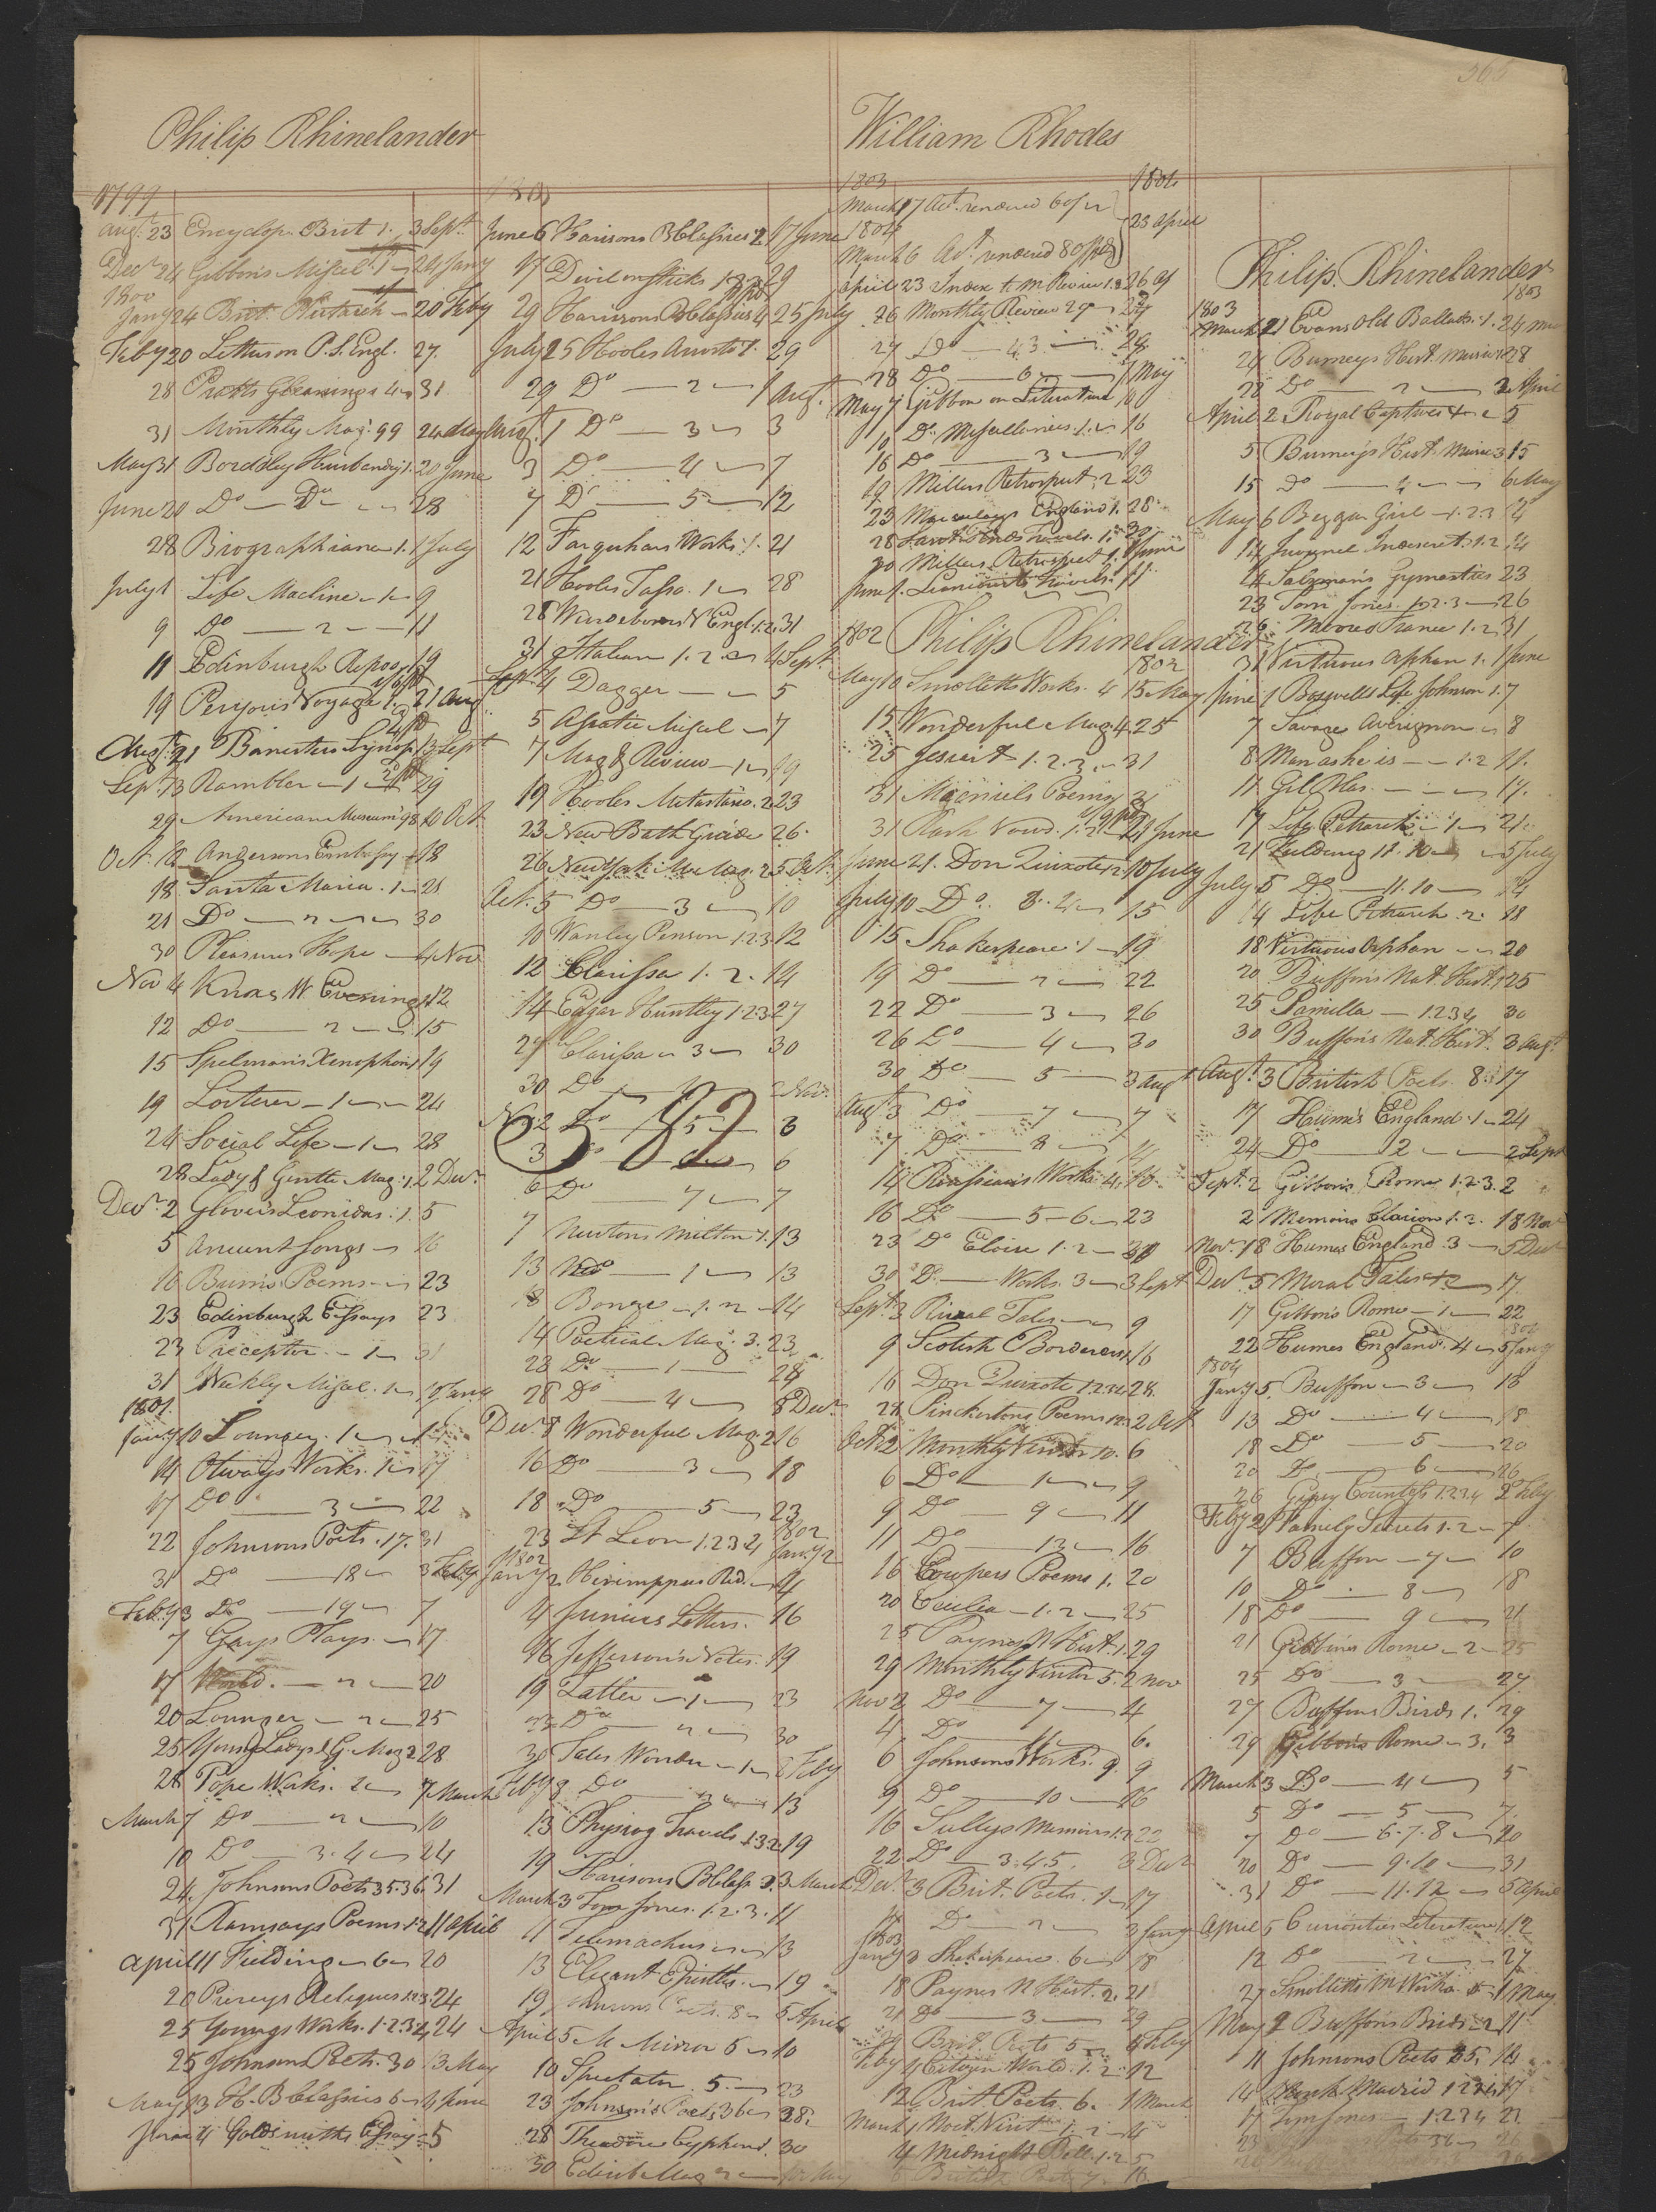 Philip Rhinelander
1799
Augt. 23 Encyclop. Brit 1. 3 Sept.
Decr 24 Gibbons Miscel. 1 24 Jany
1800
Jany 24 Brit. Plutarch 20 Feby
Feby 20 Letters on P. S. Engl. 27.
28 Pratts Gleanings 4 31
31 Monthly Mag. 99 24 May
May 31 Bordsley Husbandry 1. 20 June
June 20 Do Do 28
28 Biographiana 1. 1 July
July 1 Life Macline 1 9
9 Do 2 11
11 Edinburgh 19
19 Voyage 1. 21 Aug
Augt. 21 Banesters Synop. 13 Sept
Sept 13 Rambler 1 29
29 American Museum 98 10 Oct
Oct. 10 Andersons Embassy 18
18 Santa Maria. 1 21
21 Do 2 30
30 Pleasures Hope 4 Nov
Nov 4 Knoxs W Evenings 1 12
12 Do 2 15
15 Spelmans Xenophon 1 19
19 Loiterer 1 24
24 Social Life 1 28
28 Lady & Gentle Mag. 1. 2 Decr
Decr. 2 Glovers Leonidas. 1. 5
5 Ancient Songs 16
16 Burns Poems 23
23 Edinburgh Essays 23
23 Preceptor 1 31
31 Weekly Miscel. 1
1801.
Jany 10 Lounger. 1 14
14 Otways Works. 1 17
17 Do 3 22
22 Johnsons Poets. 17. 31
31 Do 18 3 Feby
Feby 3 Do 19 7
7 Gays Plays. 17
17 World. 2 20
20 Lounger 2 25
25 Young Ladys & G. Mag 2 28
28 Pope Works. 1 7 March
March 7 Do 2 10
10 Do 3. 4 24
24. Johnsons Poets 35. 36. 31
31 Ramsays Poems. 1. 2 11 April
April 11 Fielding 6 20
20 Perceys Reliques 1. 2. 3. 24
25 Youngs Works. 1. 2. 3. 4 24
25 Johnsons Poets. 30 13 May
May 13 H. B Classics 6 4 June
June 4 Goldsmiths Essays 5
June 6 Harisons B Classics 2. 17 June
17 Devil on Sticks 1. 2 29
29 Harisons B Classics 4 25 July
July 25 Hooles Ariosto 1. 29
29 Do 2 1 Augt.
Augt. 1 Do 3 3
3 Do 4 7
7 Do 5 12
12 Farquhars Works. 1. 21
21 Hooles Tasso. 1 28
28 N Engl. 1. 2. 31
31 Italian 1. 2. 4 Sept.
Sept. 4 Dagger 5
5 Asiatic Miscel 7
7 Mag & Review 1 19
19 Hooles Metastasio. 2 23
23 New Bath Guide 26.
26 New York Mo Mag. 2 5 Oct.
Oct. 5 Do 3 10
10 Wanley Penson 1. 2. 3. 12
12 Clarissa 1. 2. 14
14 Edgar Huntley 1. 2. 3 27
27 Clarissa 3 30
30 Do 2 Nov.
582
2 Do 5 3
3 6
6 Do 7 7
7 Newtons Milton 1. 13
13 Do 1 13
13 1. 2 14
14 Poetical Mag. 3. 23
23 Do 1 28
28 Do 4 8 Decr.
Decr. 8 Wonderful Mag. 2 16
16 Do 3 18
18 Do 5 23
23 St Leon 1. 2 3 4 1802 Jany 2
1802
Jany 2 4
4 Junius Letters. 16
16 Jeffersons Notes. 19
19 Tatler 1 23
23 Do 2 30
30 Tales Wonder 1 8 Feby
Feby 8 Do 2 13
13 Physiog Travels 1. 3. 2 19
19 Harisons B Class 3. 3 March
March 3 Tom Jones. 1. 2. 3. 11
11 Telemachus 13
13 Elegant Epistles. 19
19 Johnsons Poets. 8 5 April
April 5 M Mirror 6 10
10 Spectator 5. 23
23 Johnson's Poets 36 28.
28 Theodore Cyphon. 30
30 Edinb Mag 2
William Rhodes
1803 1804
March 17 Act. rendered 60/ 23 April
1804
March 6 Act. rendered 80/
April 23 Index to M Review 1. 26 Ap
26 Monthly Review 29 27
27 Do 43 28.
28 Do 6 7 May
May 7 Gibbon on Literature 10
10 Do. Miscellanies. 1. 16
16 Do 3 19
19 Millers Retrospect. 2 23
23 Macaulays England 1. 28
28 30
30 Millers Retrospect 1. 1 June
June 1. Travels. 11
1802 Philip Rhinelander
1802
May 10 Smolletts Works. 4 15 May
15 Wonderful Mag 4. 25
25 Jesuit 1. 2. 3. 31
31 Poems 31
31 Rash Vows. 1. 2 21 June
June 21. Don Quixote 1. 2. 10 July
July 10 Do 3. 4 15
15 Shakespeare. 1 19
19 Do 2 22
22 Do 3 26
26 Do 4 30
30 Do 5 3 Augt
Augt. 3 Do 7 7
7 Do 8 14
14 Rousseaus Works 4. 16
16 Do 5 6 23
23 Do Eloise 1. 2 30
30 Do Works. 3 3 Sept
Sept. 3 Rural Tales 9
9 Scotish Borderers 1 16
16 Don Quixote 1. 2. 3. 4. 28.
28 Pinckertons Poems 1. 2 2 Oct
Oct. 2 Monthly Visitor 10. 6
6 Do 1 9
9 Do 9 11
11 Do 13 16
16 Cowpers Poems 1. 20
20 Cecilia 1. 2 25
25 Paynes N Hist. 1. 29
29 Monthly Visitor 5. 2 Nov
Nov 2 Do 7 4
4 Do 6.
6 Johnsons Works. 9. 9
9 Do 10 16
16 Sullys Memoirs 1. 2 22
22 Do 3. 4. 5. 3 Decr
Decr. 3 Brit. Poets. 1 17
17 Do 2 3 Jany
1803
Jany 3 Shakespeare. 6 18
18 Paynes N Hist. 2. 21
21 Do 3 29
29 Brit. Poets 5 4 Feby
Feby 4 Citizen World. 1. 2. 12
12 Brit. Poets. 6. 1 March
March 1 Noct. Visit 1. 2 4
4 Midnight Bell 1. 2 5
5 British Poets 7. 16.
Philip Rhinelander
1803 1803
March 21 Evans Old Ballads. 1. 24 Mar
24 Burneys Hist. Music 28
28 Do 2 2 April
April 2 Royal Captives 5
5 Burney's Hist. Music 3 15
15 Do 4 6 May
May 6 Beggar Girl 1. 2 3
Indiscret. 1. 2 14
14 Salzman's Gymnastics 23
23 Tom Jones. 1. 2. 3 26
26 Moores France 1. 2. 31
31 Virtuous Orphan 1. 1 June
June 1 Boswells Life Johnson 1. 7
7 Savage 8
8 Man as he is 1. 2 11.
11 Gil Blas. 17.
17 Life Petrarch 1 21.
21 Fielding 5 July
July 5 Do 11. 10 14
14 Life Petrarch. 2. 18
18 Virtuous Orphan 20
20 Buffon's Nat. Hist. 1 25
25 Pamilla 1. 2 3 4 30
30 Buffons Nat. Hist. 3 Augt.
Augt. 3 British Poets. 8. 17
17 Hume's England. 1 24
24 Do 2 2 Sept
Sept. 2 Gibbons Rome 1. 2. 3. 2
2 Memoirs 1. 2. 18 Nov
Nov. 18 Humes England. 3 5 Decr
Decr. 5 Moral Tales 17.
17 Gibbons Rome 1 22
22 Humes England. 4 5 Jany
1804
Jany 5. Buffon 3 13
13 Do 4 18
18 Do 5 20
20 Do 6 26
26 Gipsy Countess 1. 2. 3. 4 2 Feby
Feby 2 Family Secrets 1. 2 7
7 Buffon 7 10
10 Do 8 18
18 Do 9 21
21 Gibbons Rome 2 25
25 Do 3 27
27 Buffons Birds 1. 29
29 Gibbons Rome 3. 3
March 3 Do 4 5
5 Do 5 7.
7 Do 6. 7. 8 20
20 Do 9. 10 31
31 Do 11. 12 5 April
April 5 Curiosities Literature 1. 12
12 Do 2 27
27 Smolletts M Works 1 May
May 2 Buffons Birds 2 11
11 Johnsons Poets 25. 14
14 Madrid 1 2 17
17 Tom Jones 1. 2 3 4 23